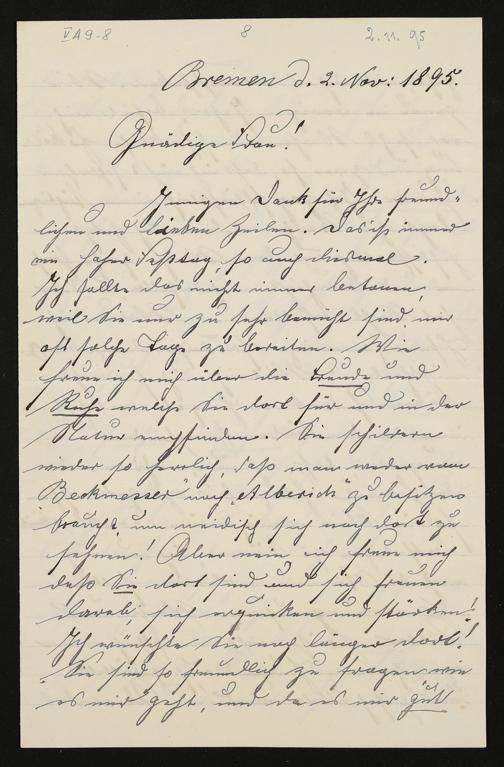 VA9-8 8 2.11.95
Bremen d. 2. Nov: 1895.
Gnädige Frau!
Innigen Dank für Ihre freund-
lichen und lieben Zeilen. Das ist immer
ein hoher Festtag, so auch diesmal.
Ich sollte das nicht immer betonen,
weil Sie nur zu sehr bemüht sind, mir
oft solche Tage zu bereiten. Wie
freue ich mich über die Freude und
Ruhe welche Sie dort für und in der
Natur empfinden. Sie schildern
wieder so herrlich, daß man weder vom
"Beckmesser" noch "Alberich" zu besitzen
braucht, um neidisch sich nach dort zu
sehnen! Aber nein ich freue mich
daß Sie dort sind und sich freuen
darob, sich erquicken und stärken!
Ich wünschte Sie noch länger dort!
Sie sind so freundlich zu fragen wie
es mir geht, und da es mir "gut"